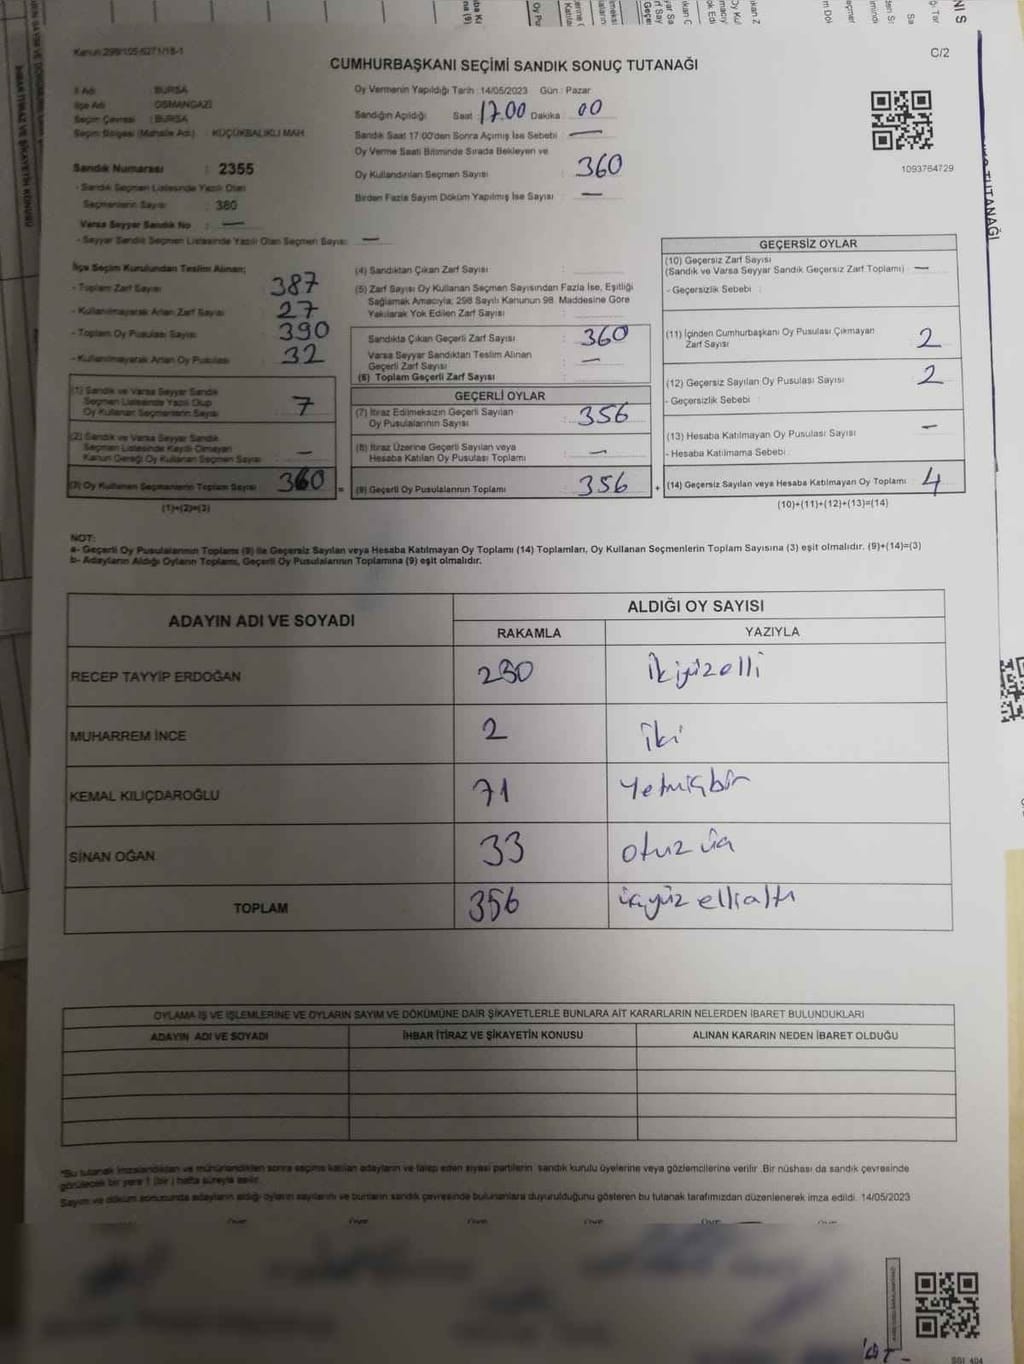 Kanun 298/105-6271/18-1
C/2
CUMHURBAŞKANI SEÇİMİ SANDIK SONUÇ TUTANAĞI
İl Adı : BURSA
İlçe Adı : OSMANGAZİ
Seçim Çevresi : BURSA
Seçim Bölgesi (Mahalle Adı) : KÜÇÜKBALIKLI MAH
Sandık Numarası : 2355
- Sandık Seçmen Listesinde Yazılı Olan
Seçmenlerin Sayısı : 380
Varsa Seyyar Sandık No : —
- Seyyar Sandık Seçmen Listesinde Yazılı Olan Seçmen Sayısı: —
Oy Vermenin Yapıldığı Tarih : 14/05/2023 Gün : Pazar
Sandığın Açıldığı Saat : 17.00 Dakika : 00
Sandık Saat 17:00'den Sonra Açımış İse Sebebi : —
Oy Verme Saati Bitiminde Sırada Bekleyen ve
Oy Kullandırılan Seçmen Sayısı : 360
Birden Fazla Sayım Döküm Yapılmış İse Sayısı : —
1093764729
İlçe Seçim Kurulundan Teslim Alınan;
- Toplam Zarf Sayısı : 387
- Kullanılmayarak Artan Zarf Sayısı : 27
- Toplam Oy Pusulası Sayısı : 390
- Kullanılmayarak Artan Oy Pusulası : 32
(1) Sandık ve Varsa Seyyar Sandık
Seçmen Listesinde Yazılı Olup
Oy Kullanan Seçmenlerin Sayısı : 7
(2) Sandık ve Varsa Seyyar Sandık
Seçmen Listesinde Kayıtlı Olmayan
Kanun Gereği Oy Kullanan Seçmen Sayısı : —
(3) Oy Kullanan Seçmenlerin Toplam Sayısı : 360
(1)+(2)=(3)
(4) Sandıktan Çıkan Zarf Sayısı :
(5) Zarf Sayısı Oy Kullanan Seçmen Sayısından Fazla İse, Eşitliği
Sağlamak Amacıyla; 298 Sayılı Kanunun 98. Maddesine Göre
Yakılarak Yok Edilen Zarf Sayısı :
Sandıkta Çıkan Geçerli Zarf Sayısı : 360
Varsa Seyyar Sandıktan Teslim Alınan
Geçerli Zarf Sayısı : —
(6) Toplam Geçerli Zarf Sayısı :
GEÇERLİ OYLAR
(7) İtiraz Edilmeksizin Geçerli Sayılan
Oy Pusulalarının Sayısı : 356
(8) İtiraz Üzerine Geçerli Sayılan veya
Hesaba Katılan Oy Pusulası Toplamı : —
= (9) Geçerli Oy Pusulalarının Toplamı : 356
GEÇERSİZ OYLAR
(10) Geçersiz Zarf Sayısı
(Sandık ve Varsa Seyyar Sandık Geçersiz Zarf Toplamı) : —
- Geçersizlik Sebebi :
(11) İçinden Cumhurbaşkanı Oy Pusulası Çıkmayan
Zarf Sayısı : 2
(12) Geçersiz Sayılan Oy Pusulası Sayısı : 2
- Geçersizlik Sebebi :
(13) Hesaba Katılmayan Oy Pusulası Sayısı : —
- Hesaba Katılmama Sebebi :
+ (14) Geçersiz Sayılan veya Hesaba Katılmayan Oy Toplamı : 4
(10)+(11)+(12)+(13)=(14)
NOT:
a- Geçerli Oy Pusulalarının Toplamı (9) ile Geçersiz Sayılan veya Hesaba Katılmayan Oy Toplamı (14) Toplamları, Oy Kullanan Seçmenlerin Toplam Sayısına (3) eşit olmalıdır. (9)+(14)=(3)
b- Adayların Aldığı Oyların Toplamı, Geçerli Oy Pusulalarının Toplamına (9) eşit olmalıdır.
ADAYIN ADI VE SOYADI
ALDIĞI OY SAYISI
RAKAMLA YAZIYLA
RECEP TAYYİP ERDOĞAN 250 ikiyüzelli
MUHARREM İNCE 2 iki
KEMAL KILIÇDAROĞLU 71 Yetmişbir
SİNAN OĞAN 33 otuz üç
TOPLAM 356 üçyüz ellialtı
OYLAMA İŞ VE İŞLEMLERİNE VE OYLARIN SAYIM VE DÖKÜMÜNE DAİR ŞİKAYETLERLE BUNLARA AİT KARARLARIN NELERDEN İBARET BULUNDUKLARI
ADAYIN ADI VE SOYADI İHBAR İTİRAZ VE ŞİKAYETİN KONUSU ALINAN KARARIN NEDEN İBARET OLDUĞU
*Bu tutanak imzalandıktan ve mühürlendikten sonra seçime katılan adayların ve talep eden siyasi partilerin sandık kurulu üyelerine veya gözlemcilerine verilir. Bir nüshası da sandık çevresinde
görülecek bir yere 1 (bir) hafta süreyle asılır.
Sayım ve döküm sonucunda adayların aldığı oyların sayılarını ve bunların sandık çevresinde bulunanlara duyurulduğunu gösteren bu tutanak tarafımızdan düzenlenerek imza edildi. 14/05/2023